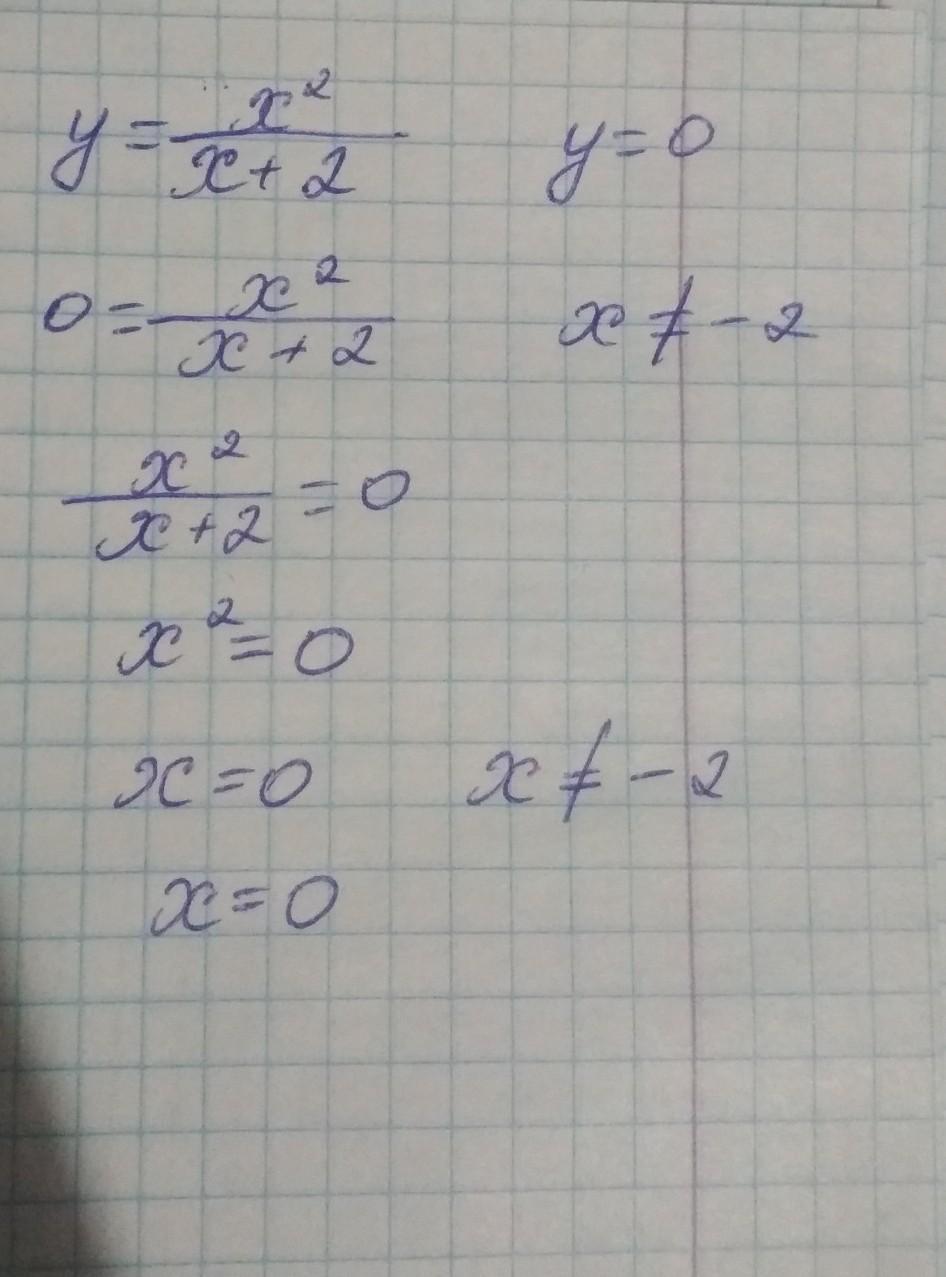 y = x²/(x + 2)    y = 0
0 = x²/(x + 2)    x ≠ -2
x²/(x + 2) = 0
x² = 0
x = 0    x ≠ -2
x = 0